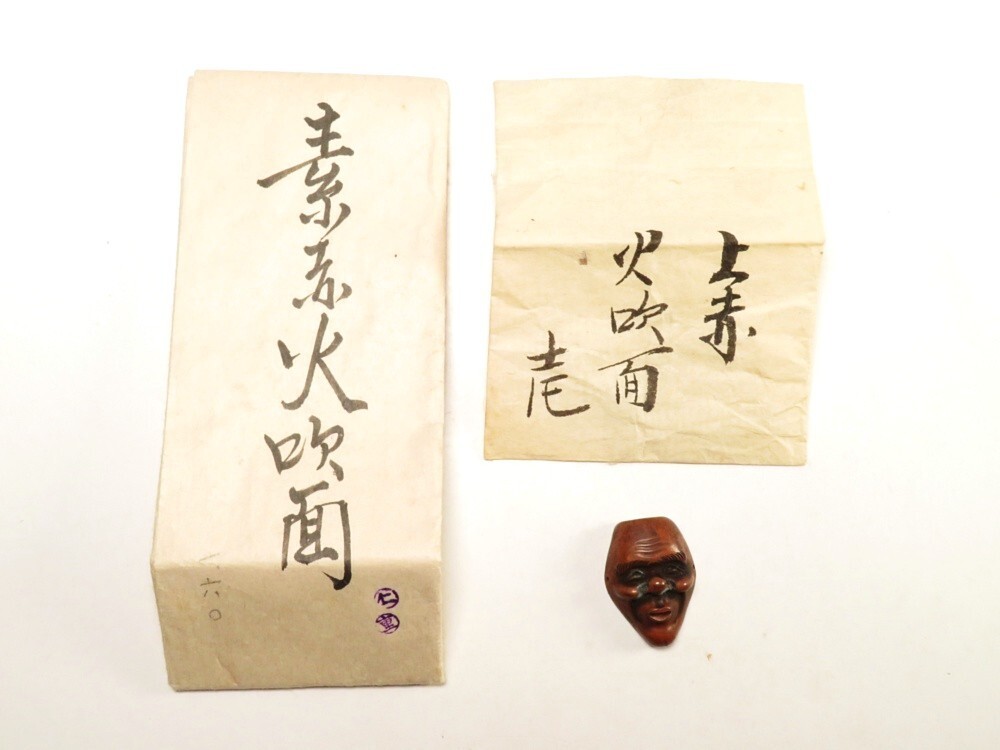 素赤火吹面
六〇
上赤
火吹面
壱